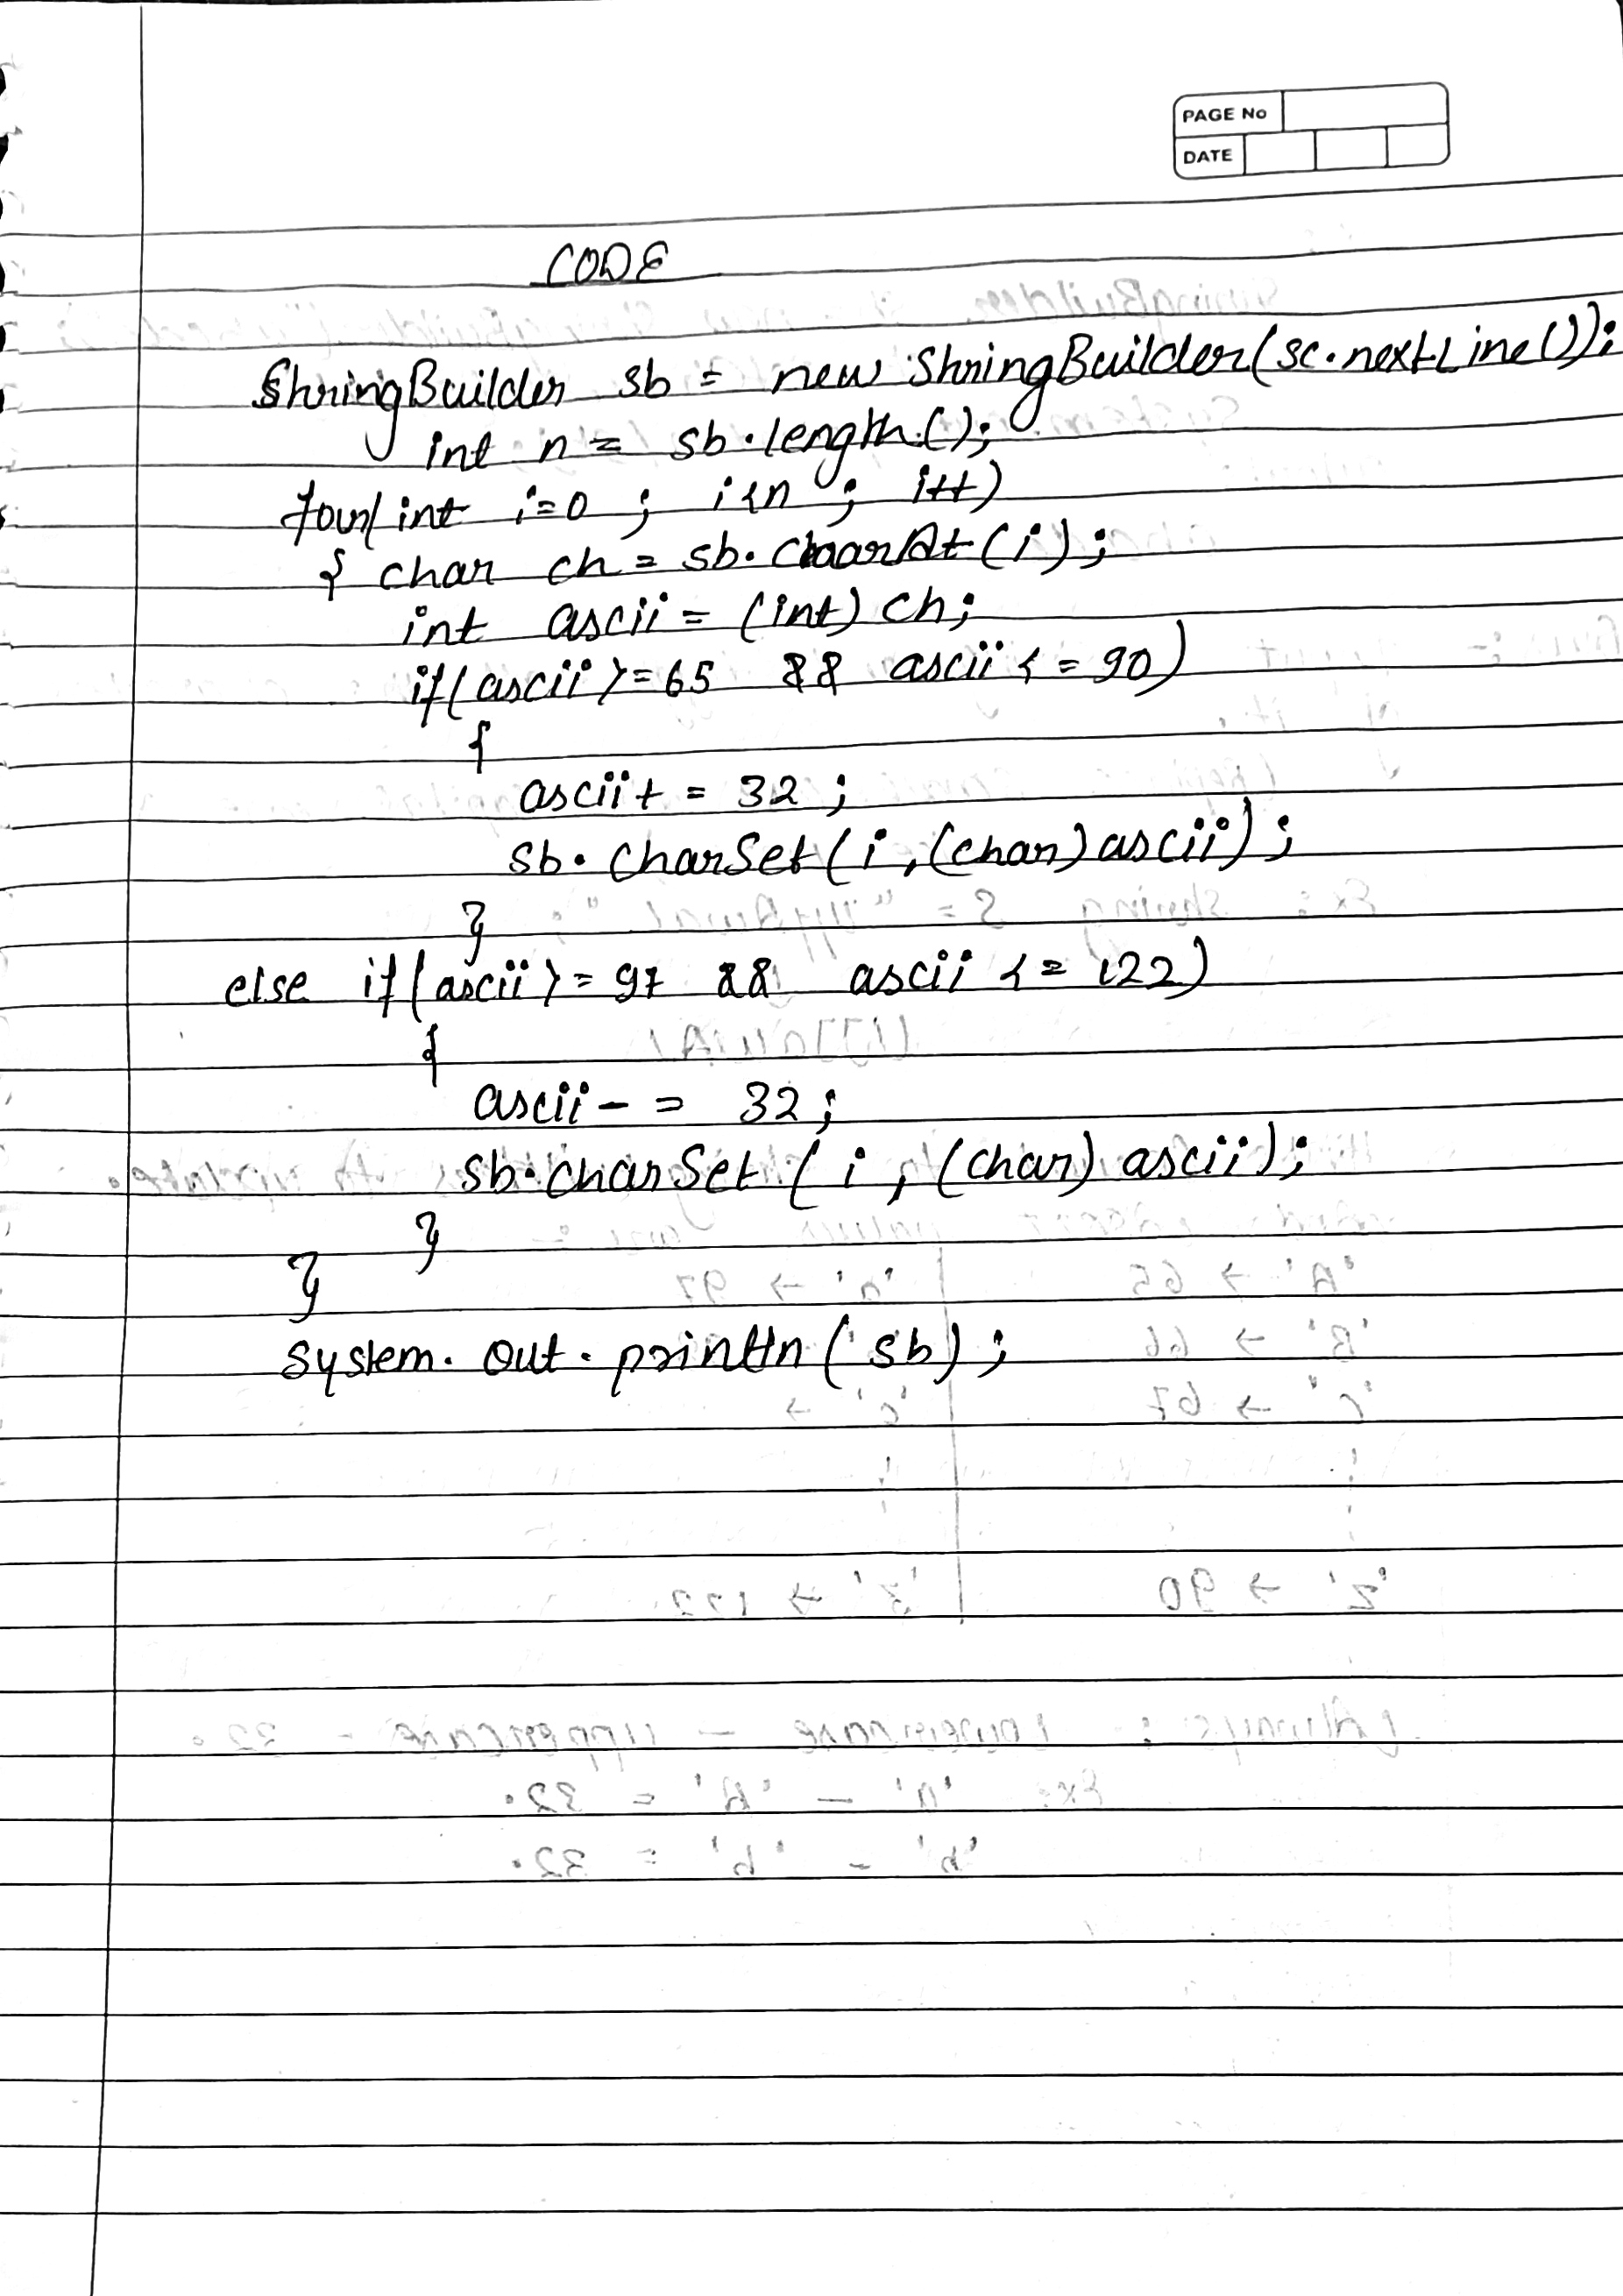 PAGE No
DATE
CODE
StringBuilder sb = new StringBuilder(sc.nextLine());
int n = sb.length();
for(int i=0 ; i<n ; i++)
{ char ch = sb.charAt(i);
int ascii = (int) ch;
if(ascii >= 65 && ascii <= 90)
{
ascii + = 32 ;
sb. CharSet(i, (char) ascii) ;
}
else if(ascii >= 97 && ascii <= 122)
{
ascii - = 32 ;
sb.charSet ( i , (char) ascii);
}
}
system. out. println ( sb) ;